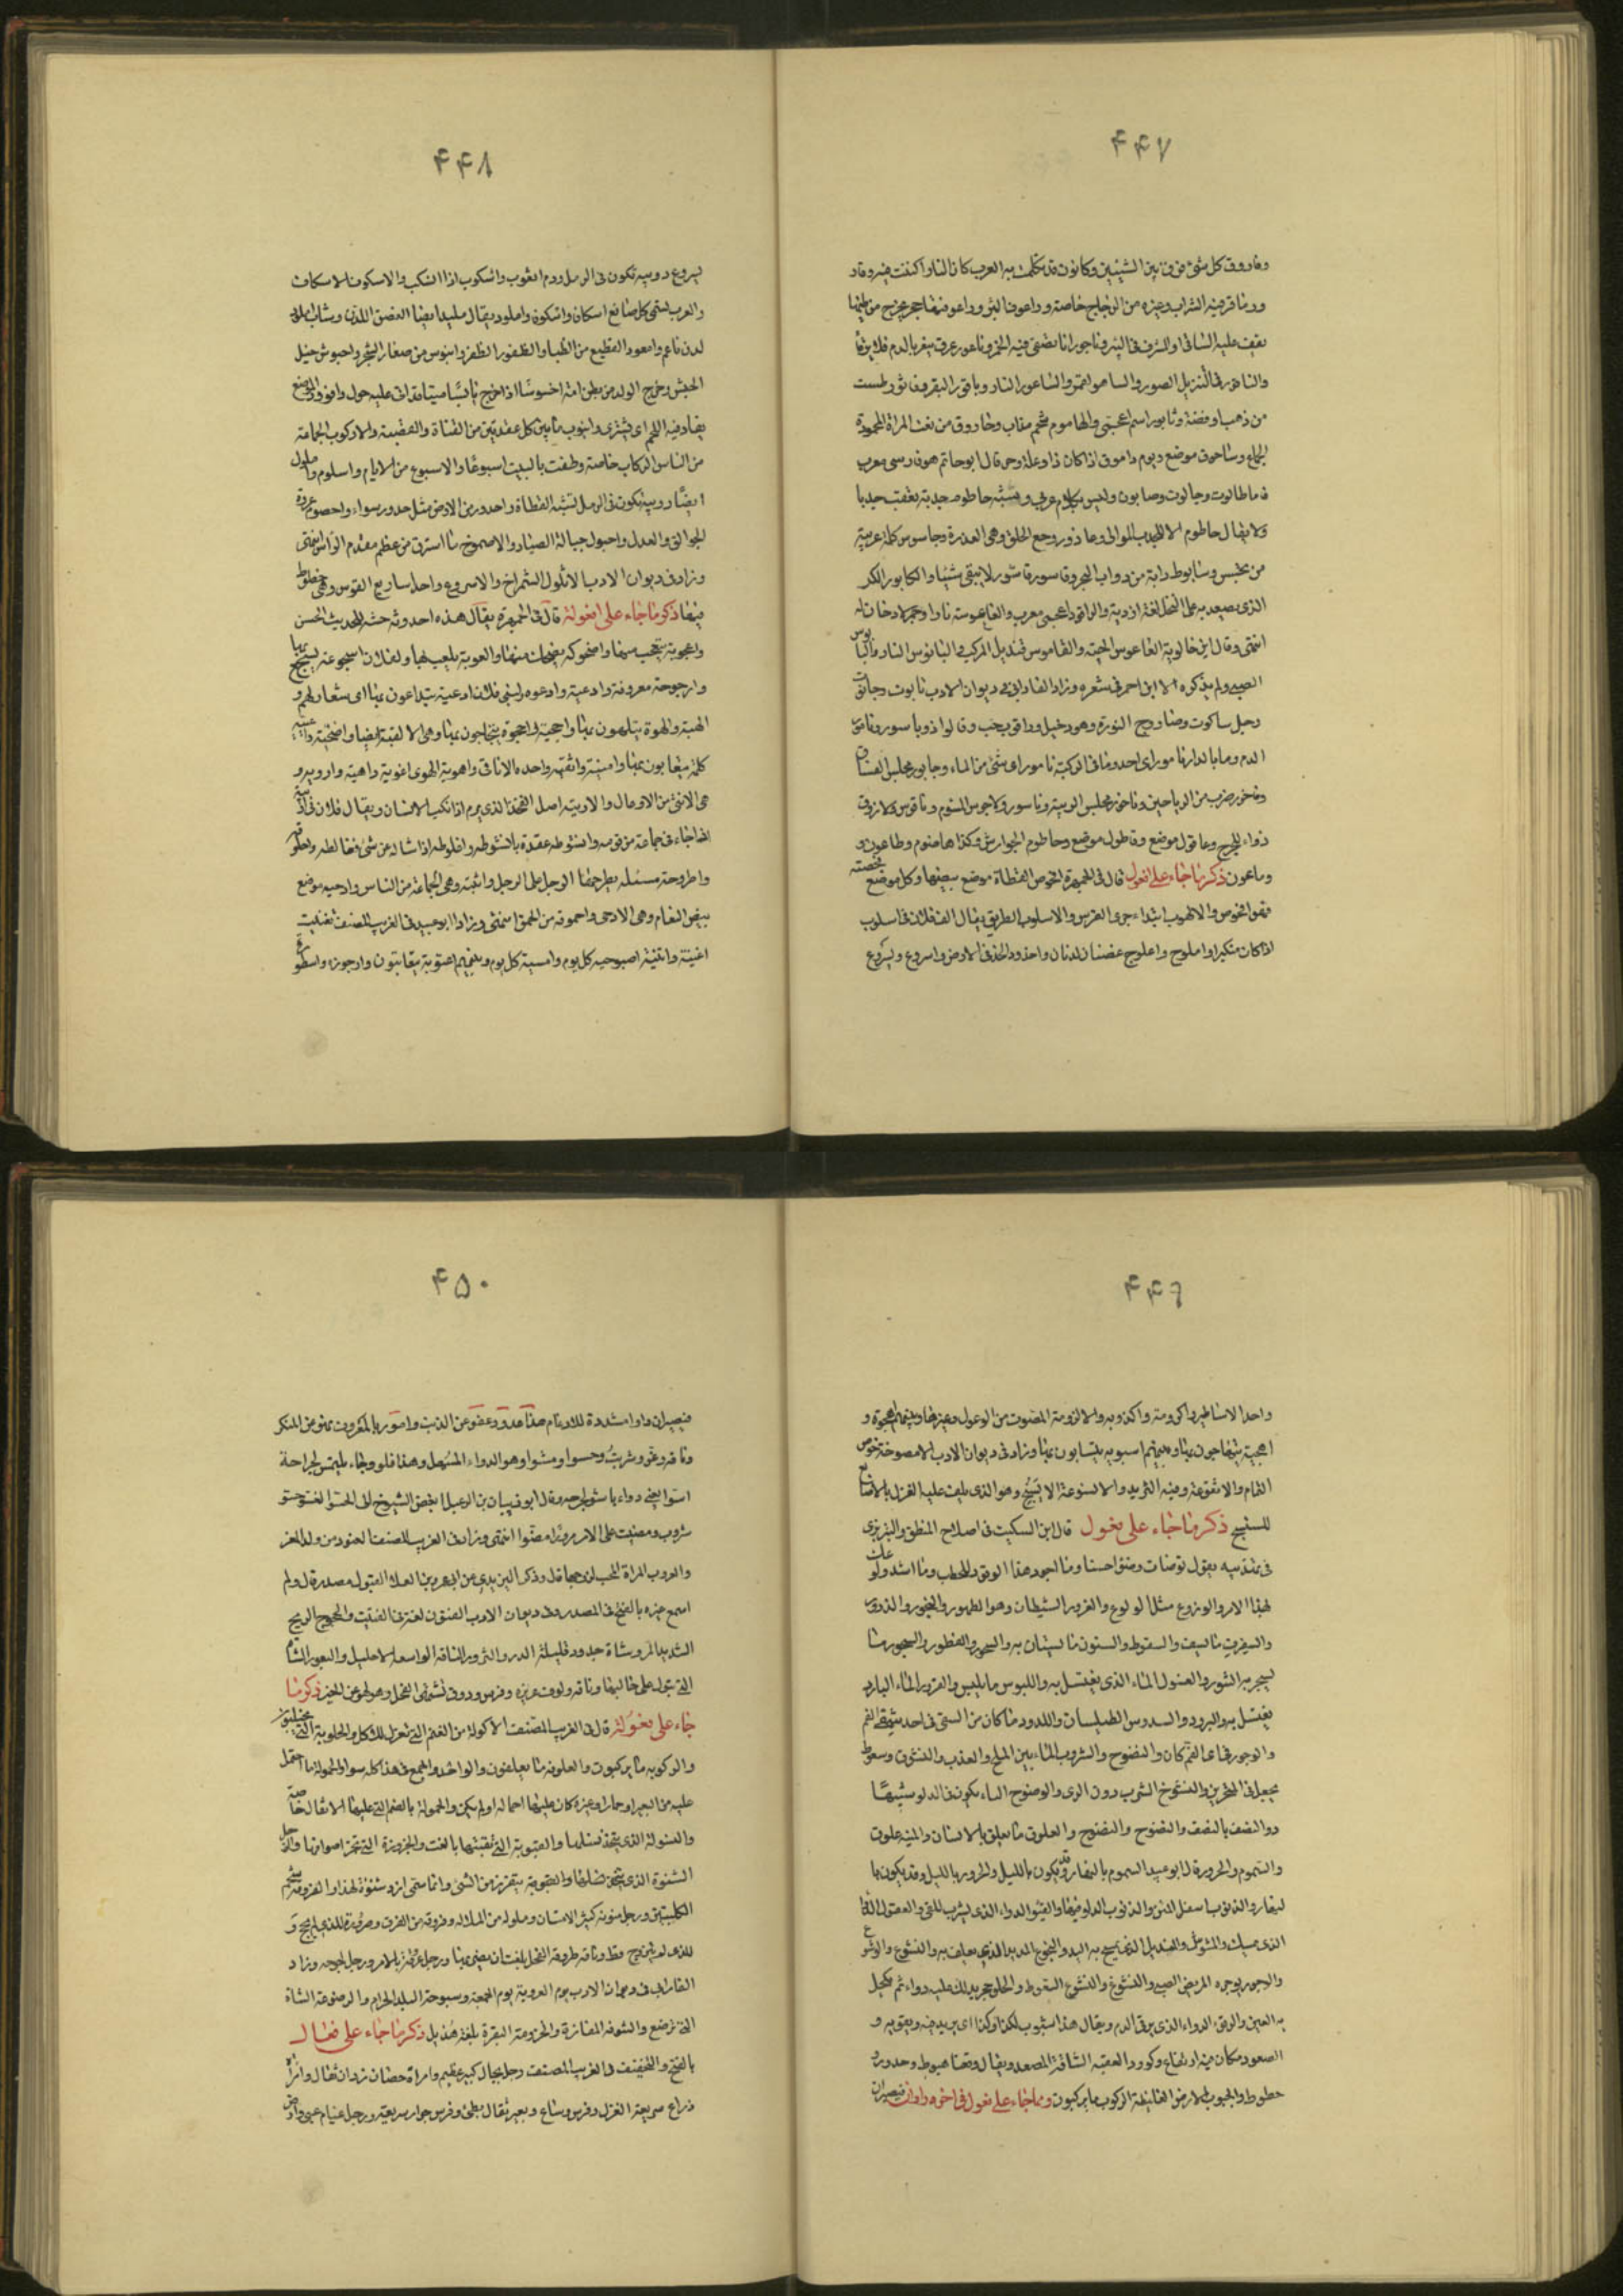 ۴۴۷
وفاروق كل شئ فرق بين الشيئين وكانون قد تكلمت به العرب كان النار اكتنت فيه وقار
ورنا قرفيه الشراب وغيره من الزجاج خاصة وراعوفة البئر وراعوفتها حجر يخرج من طيها
يقف عليه الساقى او المشرف فى البئر وناجور اناء يصفى فيه الخمر وناعور عرق ينعر بالدم فلا يرقأ
والناقور فى التنزيل الصور والساهور القمر والساعور النار وباقور البقر وفاثور طست
من ذهب او فضة وسابور اسم اعجمى والهاموم شحم مذاب وخاروق من نعت المراة المحمودة
الجماع وساحوق موضع ويوم داموق اذا كان ذا وعكة وحر قال ابو حاتم هو فارسى معرب
فاما طالوت وجالوت وصابون وليس بكلام عربى وسنة حاطوم جدبة تعقب جدبا
ولا يقال حاطوم الا للجدب المتوالى وعاذور وجع الحلق وهى العذرة وجاسوس كلمة عربية
من تجسس وسابوط دابة من دواب البحر وقاسورة اسور لا يبقى شيئا والكابور الكر
الذى يصعد به على النخل لغة ازدية والراقود اعجمى معرب والفاعوسة نار او جمر لا دخان له
انتهى وقال ابن خالوية الفاعوس الحية والقاموس قنديل المركب البانوس النار والبابوس
الصبى ولم يذكره الا ابن احمر فى شعره وزاد الفارابى فى ديوان الادب تابوت وحانوت
رجل ساكوت وصاروج النورة وهو دخيل
الدم وما بالدار تامور اى احد وما فى الركية تامور اى شئ من الماء وجابور مجلس الفساق
وفاخور ضرب من الرياحين وماخور مجلس الريبة وناسور وكابوس النوم وناقوس
دواء للجرح وعاقول موضع وقاطول موضع وحاطوم الجوارش وكذا هاضوم وطاعون و
وماعون ذكر ما جاء على افعول قال فى الجمهرة افحوص القطاة موضع بيضها وكل موضع فحصته
فهو افحوص والالهوب ابتداء جرى الفرس والاسلوب الطريق يقال انف فلان فى اسلوب
اذا كان متكبرا واملوج واعلوج غصنان لدنان واخدود الخد فى الارض واسروع ويسروع
۴۴۸
يسروع دويبة تكون فى الرمل ودم اثعوب واسكوب اذا انسكب والاسكوف الاسكاف
والعرب تسمى كل صانع اسكاف واسكوف واملود يقال مليد ايضا الغصن اللدن وشاب املود
لدن ناعم وامعوز القطيع من الظبا والظفور الظفر وانبوس من صغار الشجر واحبوش جيل
الحبش وخرج الولد من بطن امه اخسوسا اذا خرج يابسا ميتا قد اتى عليه حول وافوود الموضع
يفاد فيه اللحم اى يشوى وانبوب ما بين كل عقدتين من القناة والقصبة والاركوب الجماعة
من الناس الركاب خاصة وطفت بالبيت اسبوعا والاسبوع من الايام واسلوم واملول
ايضا دويبة تكون فى الرمل تشبه القطاة واحدور من الارض مثل حدور سواء واحصوم عروة
الجوالق والعدل واحبول حبالة الصياد والاصموخ ما استرق من عظم مقدم الراس انتهى
وزاد فى ديوان الادب الاثكول الشمراخ والاسروع واحد اساريع القوس وهى خطوط
فيها ذكر ما جاء على افعولة قال فى الجمهرة يقال هذه احدوثة حسنة للحديث الحسن
واعجوبة يتعجب منها واضحوكة يضحك منها والعوبة يلعب بها ولفلان اسجوعة يسجع بها
وارجوحة معروفة وادعية وادعوة ولبنى فلان ادعية يتداعون بها اى شعار لهم و
الهية والهوة يتلهون بها واحجية واحجوة يتحاجون بها وهى الالقية ايضا واضحية
كلمة يتعايون بها وامنية واثفية واحدة الاثافى واهوية الهوى اغوية داهية وارويه و
هى الانثى من الاوعال والاربية اصل الفخذ الذى يرم اذا نكب الانسان ويقال فلان فى اربية
اذا جاء فى جماعة من قومه وانشوطة عقدة بالانشوطه واغلوطة اذا سأله عن شئ فغالطه واحلوقة
واطروحة مسئلة يطرحها الرجل على الرجل واثبية وهى الجماعة من الناس وادحيه موضع
بيض النعام وهى الادحى واحموقة من الحمق انتهى وزاد ابو عبيد فى الغريب المصنف تغنيت
اغنية واثنية اصبوحيه كل يوم وامسية كل يوم وبينهم اعتوبة يتعاتبون وارجوزة واسطورة
۴۴۹
واحد الاساطير واكرومة واكذوبه والازومة المصوت من الوعول وغيرها وبينهم اهجوة و
اهجية يتهاجون بها وبينهم اسبوبه يتسابون بها وزاد فى ديوان الادب الامصوخة خوص
الثمام والانقوعة وقبة الثريد والانسوعة الا يسيح وهو الذى يلف عليه الغزل بالاصابع
للنسيج ذكر ما جاء على فعول قال ابن السكيت فى اصلاح المنطق والتبريزى
فى تهذيبه يقول توضات وضوا حسنا وما اجود هذا الوقود للحطب وما اشد ولوعك
بهذا الامر والوزوع مثل الولوع والغرور الشيطان وهو الطهور والبخور والذرور
والسفوف ما يسف والسعوط والسنون ما يستن به والسحور والفطور والسجور ما
يسجر به التنور والغسول الماء الذى يغتسل به واللبوس ما يلبس والقرور الماء البارد
يغتسل به والبرود والسدوس الطيلسان واللدود ما كان من السقى فى احد شقى الفم
والوجور فى اى الفم كان والنضوح والشروب الماء بين الملح والعذب والنشوق وسعوط
يجعل فى المنخرين والنشوح الشرب دون الرى والوضوح الماء يكون فى الدلو شبيها
دو النصف بالنصف والنضوح والنضوح والعلوق ما يعلق بالانسان والمنية علوق
والسموم والحرور قال ابو عبيد السموم بالنهار وقد يكون بالليل والحرور بالليل وقد يكون با
لنهار والذنوب اسفل المتن والذنوب الدلو فيها والقيئ والدواء الذى يشرب للقئ والعقول الدواء
الذى يمسك والمشوش والمنديل الذى يمسح به اليد والنجوع المديد الذى يعلف به والنشوع والوشوع
والوجور يوجره المريض الصبى والنشوغ والنشوع السعوط والحلوء حجر يدلك عليه دواء ثم يكحل
به العين والرقوء الدواء الذى يرقا الدم ويقال هذا شبوب لكذا وكذا اى يزيد فيه ويقويه و
الصعود مكان فيه ارتفاع وكوود العقبة الشاقة المصعد ويقال وقعنا هبوط وحدور و
حطوط والجبوب الارض الغليظة الركوب ما يركبون ومما جاء على فعول فى اخره واوان فيصيران
۴۵۰
فيصيران واوا مشددة للادغام هذا عدو وعفو عن الذنب وامور بالمعروف نهو عن المنكر
وناقة رغو وشربت وحسوا ومشوا وهو الدواء المسهل وهذا فلو وجاء يلتمس لجراحة
اسوا يعنى دواء ياسو لجرحه وقال ابو ذبيان بن الرعبل ابغض الشيوخ الى الحسو الفسو حسو
شروب ومضيت على الامر مضوا انتهى وزاد فى الغريب المصنف العتود من ولد المعز
والعروب المراة المتحببة لزوجها قال وذكر اليزيدى عن ابى عمرو بن العلاء القبول مصدر قال ولم
اسمع غيره بالفتح فى المصدر وفى ديوان الادب الفتون لغة فى الفتيت والخجوج الريح
الشديد المر وشاة جدود قليلة الدر والثرور الناقة الواسعة الاحليل واليعور الشاة
التى تبول على حالبها وناقة ولوف غزيرة وفرس ودوق تشتهى الفحل وهو لهو عن الخير ذكر ما
جاء على فعولة قال فى الغريب المصنف الاكولة من الغنم التى تعزل للاكل والحلوبة التى يحتلبون
والركوبه ما يركبون والعلوفة ما يعلفون والواحد والجمع فى هذا كله سواء والحمولة ما احتمل
عليه من البعير او حمار او غيره كان عليها احمال او لم يكن والحمولة بالضم التى عليها الاثقال خاصة
والنسولة الذى يتخذ نسلها والقتوبة التى نقبتها بالقتب والجزوزة التى تجز اصوافها والرجل
الشنوة الذى يتقزز من الشئ وانما سمى ازد شنوة لهذا والفروقة شحم
الكليتين ورجل منونة كثير الامتنان وملولة من الملالة وفروقة من الفرق وصرورة للذى لم يحج و
للذى لم يتزوج قط وناقة طروقة الفحل بلغت ان يضربها ورجل عروفة بالامر ورجل لجوجه وزاد
الفارابى فى ديوان الادب يوم العروبة يوم الجمعة وسبوحة البلد الحرام والرضوعة الشاة
التى ترضع والتنوفة المفازة والخزومة البقرة بلغة هذيل ذكر ما جاء على فعال
بالفتح والتخفيف فى الغريب المصنف رجل بجال كبير عظيم وامراة حصان رزان ثقال وامراة
ذراع سريعة الغزل وفرس وساع وبعير ثقال بطئ وفرس جواد سريعة ورجل عبام عيى وارض